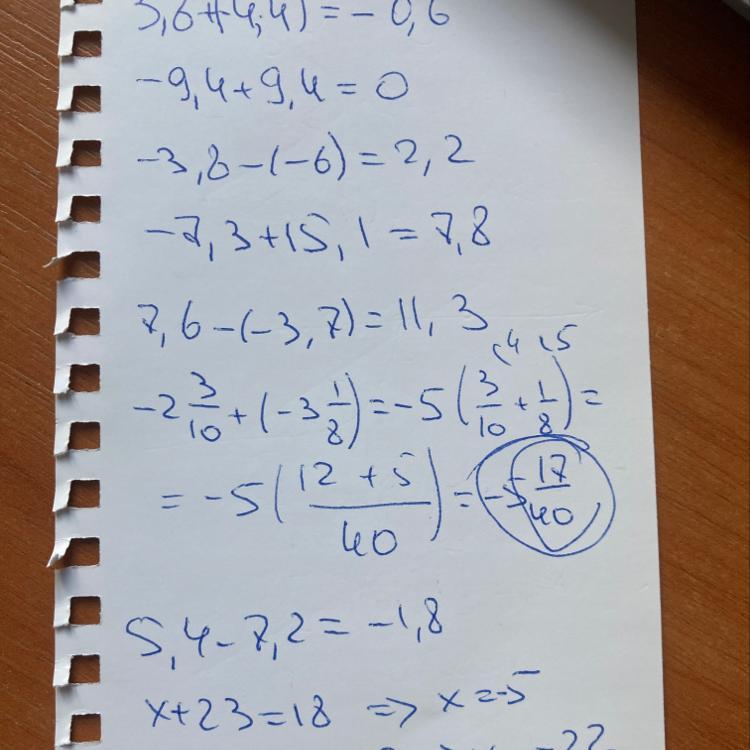 3,6+(-4,4) = -0,6
-9,4+9,4 = 0
-3,8-(-6) = 2,2
-7,3+15,1 = 7,8
7,6-(-3,7) = 11,3
-2 3/10 + (-3 1/8) = -5 (3/10 + 1/8) =
= -5 (12+5 / 40) = -5 17/40
5,4-7,2 = -1,8
x+23=18 => x=-5
=22